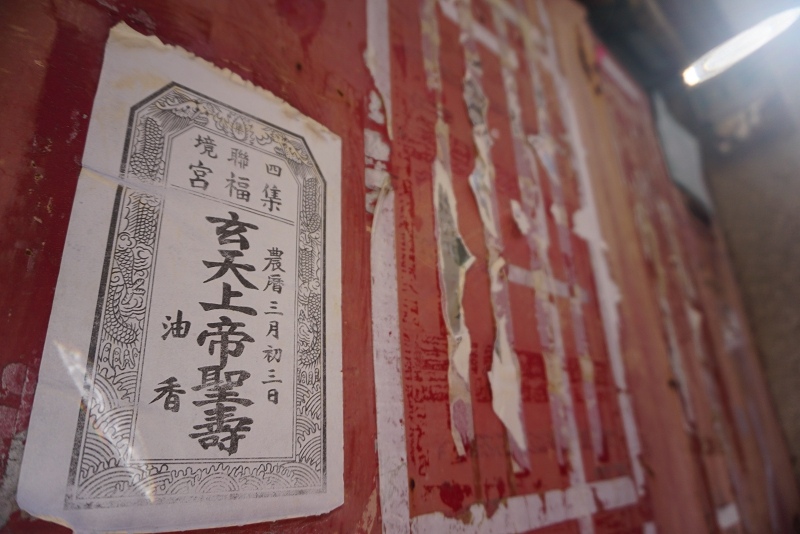 四聯境
集福宮
農曆三月初三日
玄天上帝聖壽
油香